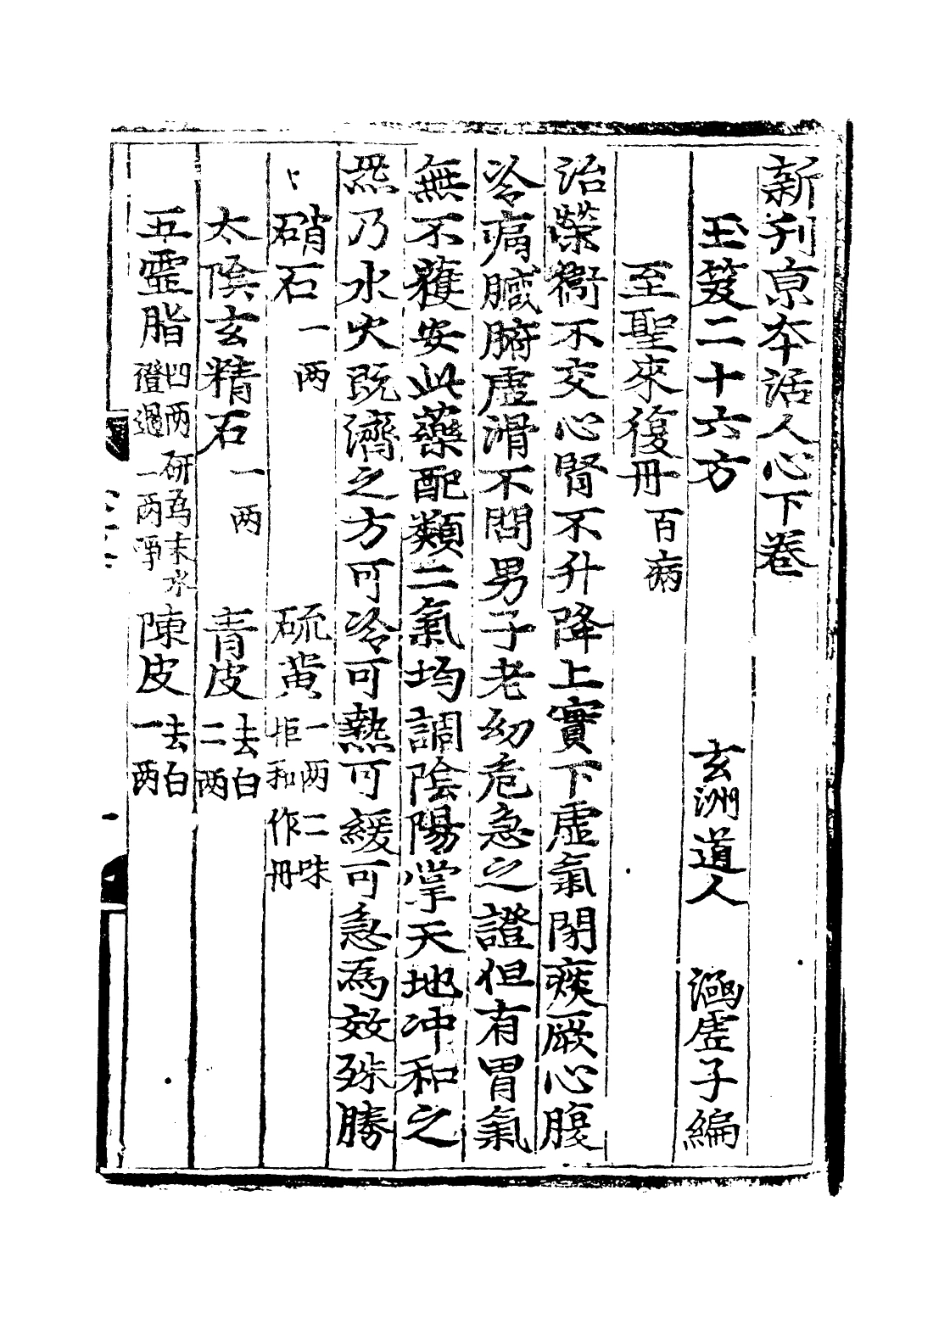 新刋京本活人心下卷
玉笈二十六方 玄洲道人 涵虛子編
至聖來復冊 百病
治榮衞不交心腎不升降上實下虛氣閉痰厥心腹
冷痛臟腑虛滑不問男子老幼危急之證但有胃氣
無不獲安此藥配類二氣均調陰陽掌天地冲和之
炁乃水火既濟之方可冷可熱可緩可急為效殊勝
硝石 一两 硫黃 一两二味 和作冊
太陰玄精石 一两 青皮 去白 二两
五靈脂 四两研為末水 澄過一两 陳皮 去白 一两